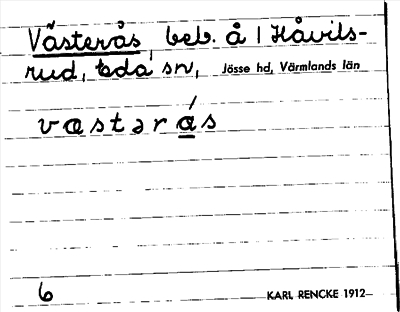 Västerås, beb. å 1 Håvils-
rud, Eda sn, Jösse hd, Värmlands län
vastərás
6 KARL RENCKE 1912